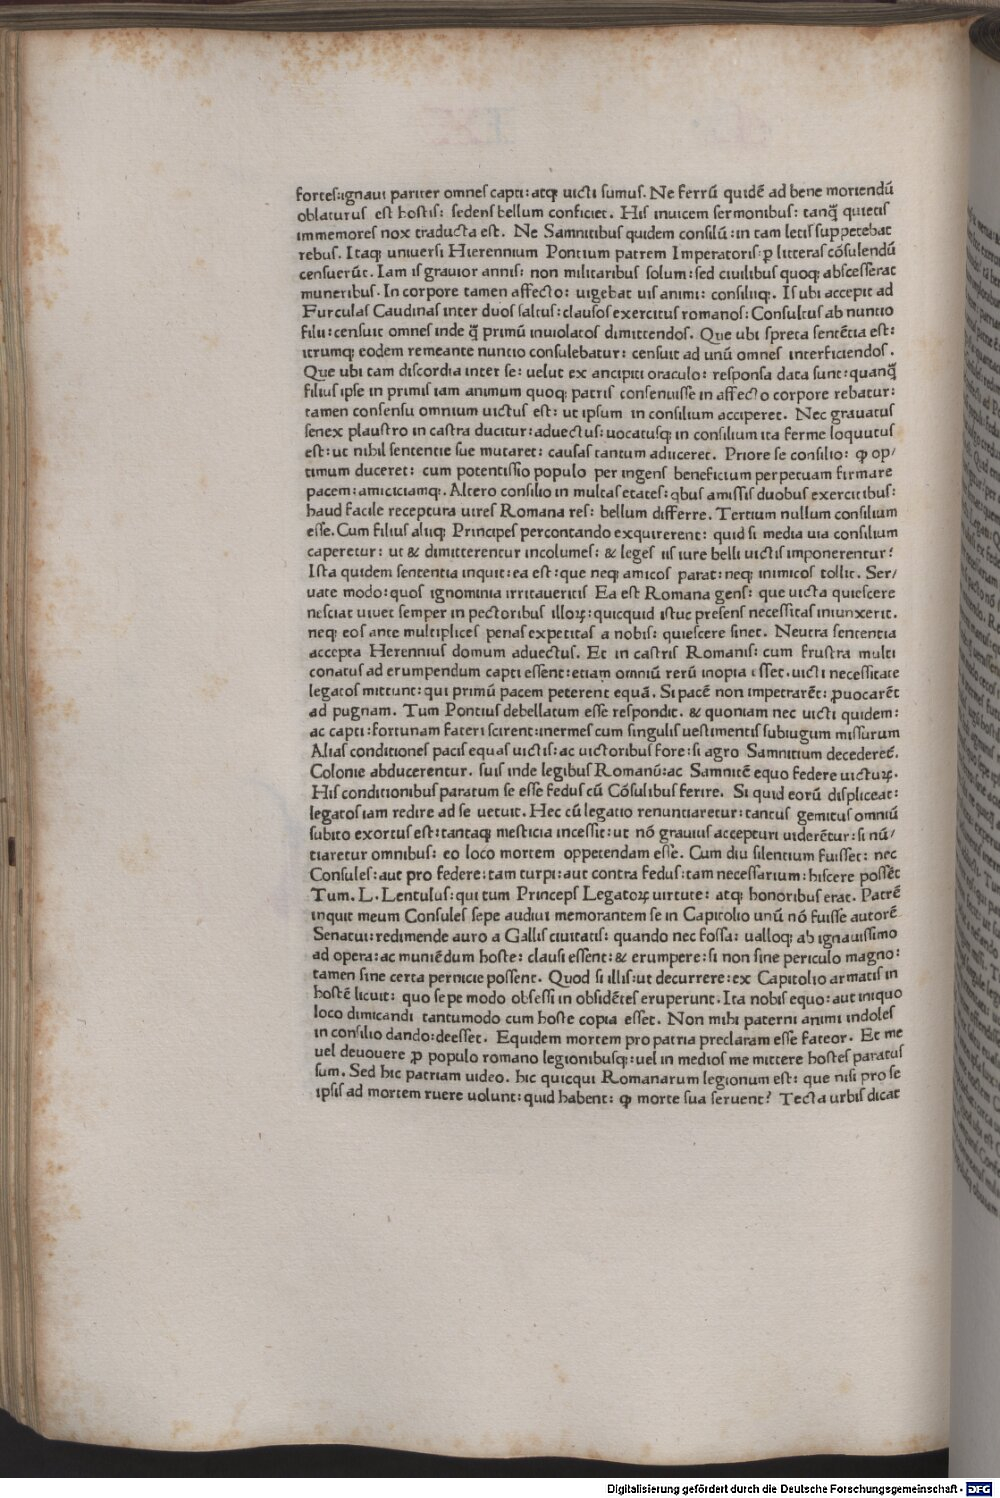 fortes: ignaui pariter omnes capti: atq; uicti sumus. Ne ferrū quidē ad bene moriendū
oblaturus est hostis: sedens bellum conficiet. His inuicem sermonibus: tanq̃ quietis
immemores nox traducta est. Ne Samnitibus quidem consiliū: in tam letis suppetebat
rebus. Itaq; uniuersi Hierennium Pontium patrem Imperatoris: ꝑ litteras cōsulendū
censuerūt. Iam is grauior annis: non militaribus solum: sed ciuilibus quoq; abscesserat
muneribus. In corpore tamen affecto: uigebat uis animi: consiliiq;. Is ubi accepit ad
Furculas Caudinas inter duos saltus: clausos exercitus romanos: Consultus ab nuntio
filii: censuit omnes inde q̃ primū inuiolatos dimittendos. Que ubi spreta sentētia est:
iterumq; eodem remeante nuntio consulebatur: censuit ad unū omnes interficiendos.
Que ubi tam discordia inter se: uelut ex ancipiti oraculo: responsa data sunt: quanq̃
filius ipse in primis iam animum quoq; patris consenuisse in affecto corpore rebatur:
tamen consensu omnium uictus est: ut ipsum in consilium acciperet. Nec grauatus
senex plaustro in castra ducitur: aduectus: uocatusq; in consilium ita ferme loquutus
est: ut nihil sententie sue mutaret: causas tantum adiiceret. Priore se consilio: ꝙ op/
timum duceret: cum potentissio populo per ingens beneficium perpetuam firmare
pacem: amiciciamq;. Altero consilio in multas etates: qbus amissis duobus exercitibus:
haud facile receptura uires Romana res: bellum differre. Tertium nullum consilium
esse. Cum filius aliiq; Principes percontando exquirerent: quid si media uia consilium
caperetur: ut & dimitterentur incolumes: & leges iis iure belli uictis imponerentur?
Ista quidem sententia inquit: ea est: que neq; amicos parat: neq; inimicos tollit. Ser/
uate modo: quos ignominia irritaueritis Ea est Romana gens: que uicta quiescere
nesciat uiuet semper in pectoribus illoꝝ: quicquid istuc presens necessitas iniunxerit.
neq; eos ante multiplices penas expetitas a nobis: quiescere sinet. Neutra sententia
accepta Herennius domum aduectus. Et in castris Romanis: cum frustra multi
conatus ad erumpendum capti essent: etiam omniū rerū inopia esset. uicti necessitate
legatos mittunt: qui primū pacem peterent equā. Si pacē non impetrarēt: ꝓuocarēt
ad pugnam. Tum Pontius debellatum esse respondit. & quoniam nec uicti quidem:
ac capti: fortunam fateri scirent: inermes cum singulis uestimentis subiugum missurum
Alias conditiones pacis equas uictis: ac uictoribus fore: si agro Samnitium decederet̃.
Colonie abducerentur. suis inde legibus Romanū: ac Samnitē equo federe uictuꝝ.
His conditionibus paratum se esse fedus cū Cōsulibus ferire. Si quid eorū displiceat:
legatos iam redire ad se uetuit. Hec cū legatio renuntiaretur: tantus gemitus omniū
subito exortus est: tantaq; mesticia incessit: ut nō grauius accepturi uiderētur: si nū/
tiaretur omnibus: eo loco mortem oppetendam esse. Cum diu silentium fuisset: nec
Consules: aut pro federe: tam turpi: aut contra fedus: tam necessarium: hiscere possēt
Tum. L. Lentulus: qui tum Princeps Legatoꝝ uirtute: atq; honoribus erat. Patrē
inquit meum Consules sepe audiui memorantem se in Capitolio unū nō fuisse autorē
Senatui: redimende auro a Gallis ciuitatis: quando nec fossa: ualloq; ab ignauissimo
ad opera: ac muniēdum hoste: clausi essent: & erumpere: si non sine periculo magno:
tamen sine certa pernicie possent. Quod si illis: ut decurrere: ex Capitolio armatis in
hostē licuit: quo sepe modo obsessi in obsidētes eruperunt. Ita nobis equo: aut iniquo
loco dimicandi tantumodo cum hoste copia esset. Non mihi paterni animi indoles
in consilio dando: deesset. Equidem mortem pro patria preclaram esse fateor. Et me
uel deuouere ꝑ populo romano legionibusq; uel in medios me mittere hostes paratus
sum. Sed hic patriam uideo. hic quicqui Romanarum legionum est: que nisi pro se
ipsis ad mortem ruere uolunt: quid habent: ꝙ morte sua seruent? Tecta urbis dicat
Digitalisierung gefördert durch die Deutsche Forschungsgemeinschaft - DFG